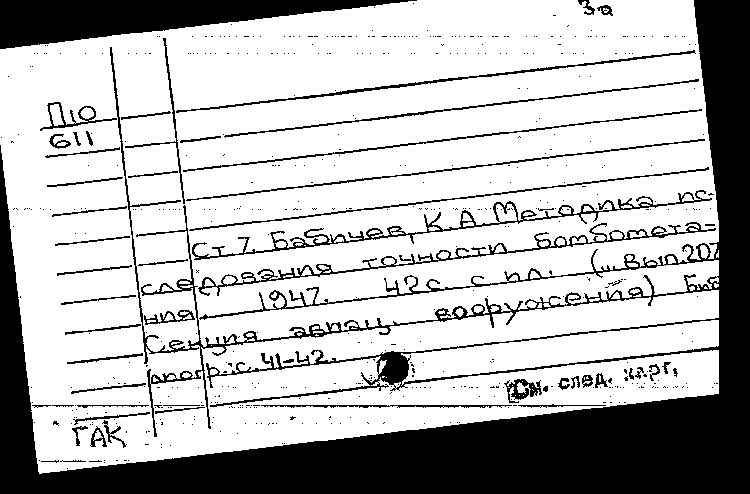 3а
П10
611
Ст.7. Бабичев, К.А. Методика ис-
следования точности бомбомета=
ния. 1947. 42с. с ил. (... Вып.207
Секция авиац. вооружения) Биб
лиогр.: с. 41-42.
См. след. карт.
ГАК